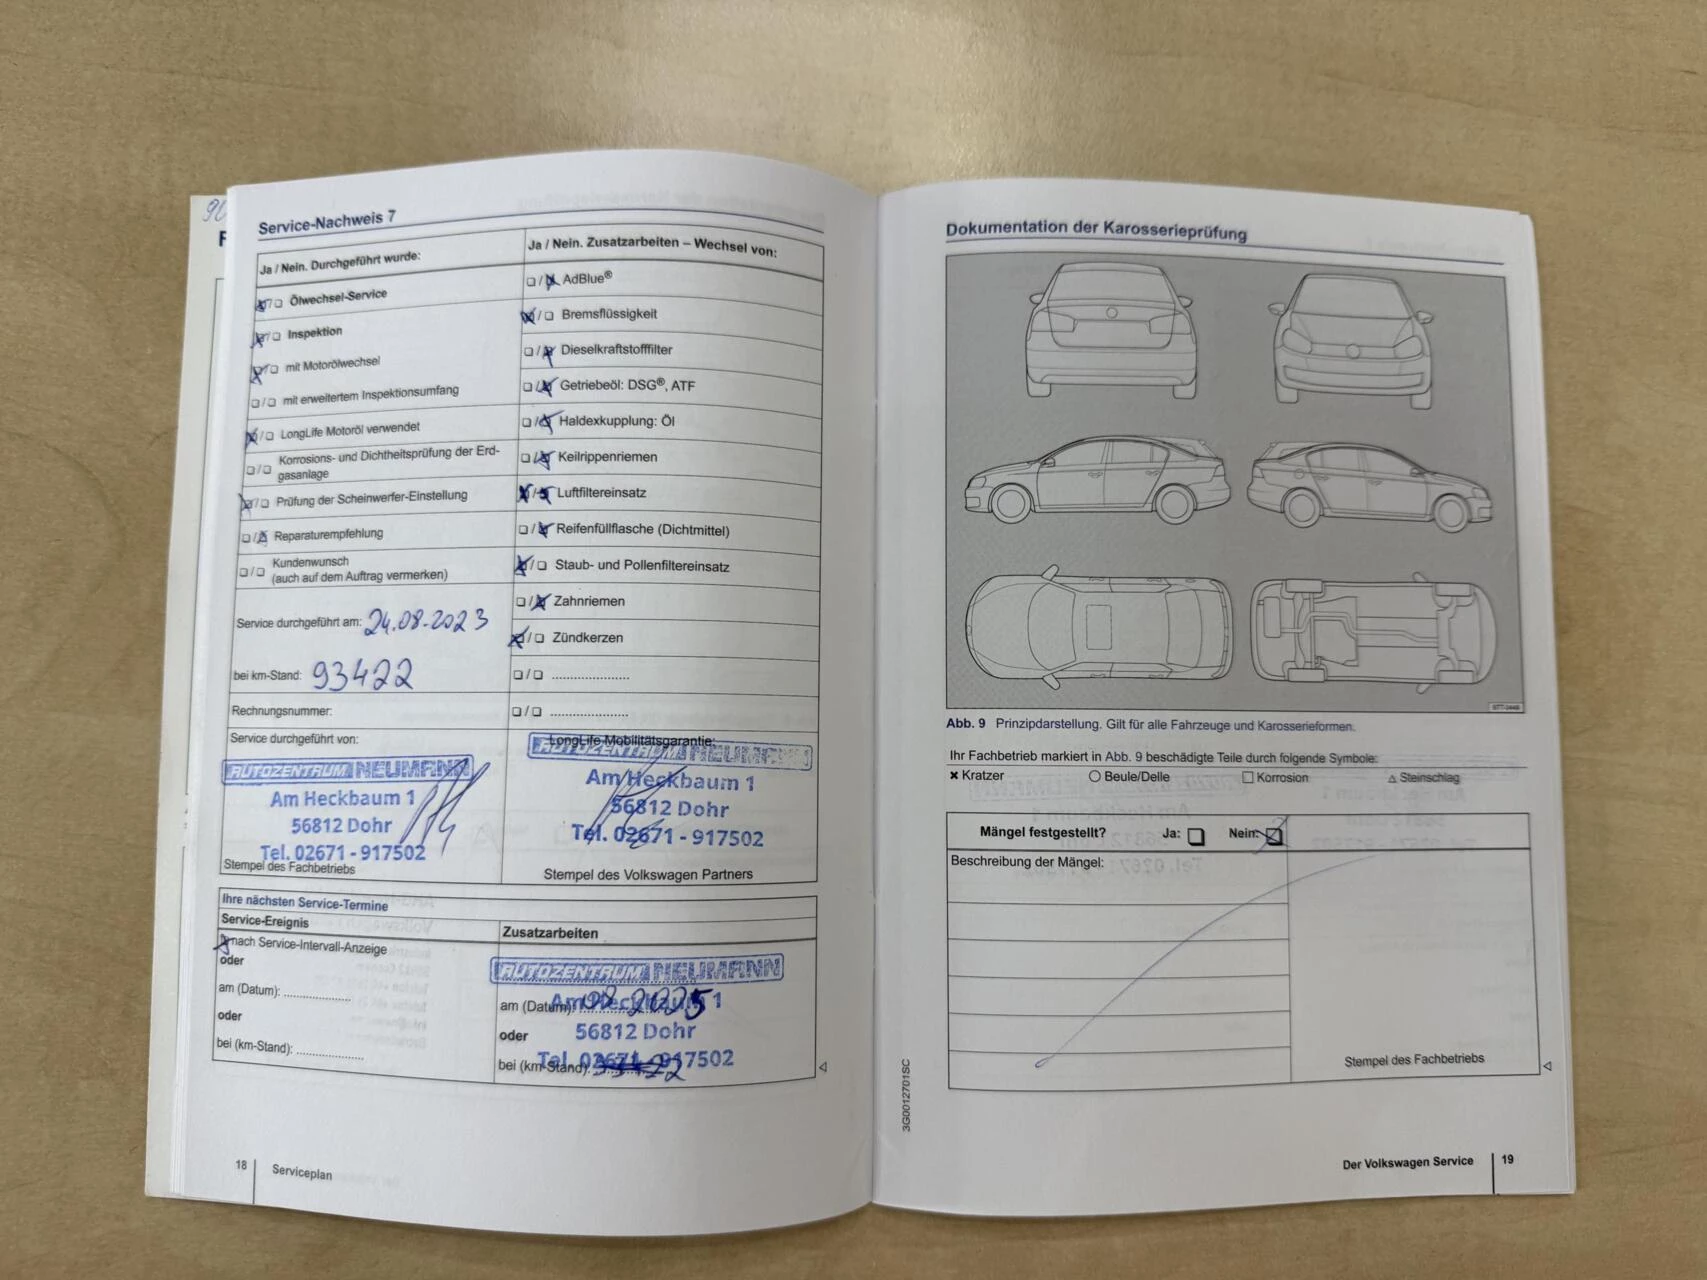 Service-Nachweis 7
Ja / Nein. Durchgeführt wurde:
❏/❏ Ölwechsel-Service
❏/❏ Inspektion
❏/❏ mit Motorölwechsel
❏/❏ mit erweitertem Inspektionsumfang
❏/❏ LongLife Motoröl verwendet
❏/❏ Korrosions- und Dichtheitsprüfung der Erd-
gasanlage
❏/❏ Prüfung der Scheinwerfer-Einstellung
❏/❏ Reparaturempfehlung
❏/❏ Kundenwunsch
(auch auf dem Auftrag vermerken)
Service durchgeführt am: 24.08.2023
bei km-Stand: 93422
Rechnungsnummer:
Service durchgeführt von:
AUTOZENTRUM NEUMANN
Am Heckbaum 1
56812 Dohr
Tel. 02671 - 917502
Stempel des Fachbetriebs
Ja / Nein. Zusatzarbeiten – Wechsel von:
❏/❏ AdBlue®
❏/❏ Bremsflüssigkeit
❏/❏ Dieselkraftstofffilter
❏/❏ Getriebeöl: DSG®, ATF
❏/❏ Haldexkupplung: Öl
❏/❏ Keilrippenriemen
❏/❏ Luftfiltereinsatz
❏/❏ Reifenfüllflasche (Dichtmittel)
❏/❏ Staub- und Pollenfiltereinsatz
❏/❏ Zahnriemen
❏/❏ Zündkerzen
❏/❏ ......................
❏/❏ ......................
LongLife Mobilitätsgarantie:
AUTOZENTRUM NEUMANN
Am Heckbaum 1
56812 Dohr
Tel. 02671 - 917502
Stempel des Volkswagen Partners
Ihre nächsten Service-Termine
Service-Ereignis
nach Service-Intervall-Anzeige
oder
am (Datum): ..................
oder
bei (km-Stand): ..................
Zusatzarbeiten
AUTOZENTRUM NEUMANN
Am Heckbaum 1
am (Datum): 08 2025
56812 Dohr
oder
Tel. 02671 - 917502
bei (km-Stand):
18 Serviceplan
Dokumentation der Karosserieprüfung
Abb. 9 Prinzipdarstellung. Gilt für alle Fahrzeuge und Karosserieformen.
Ihr Fachbetrieb markiert in Abb. 9 beschädigte Teile durch folgende Symbole:
× Kratzer ○ Beule/Delle □ Korrosion △ Steinschlag
Mängel festgestellt? Ja: ❏ Nein: ❏
Beschreibung der Mängel:
Stempel des Fachbetriebs
3G0012701SC
Der Volkswagen Service 19